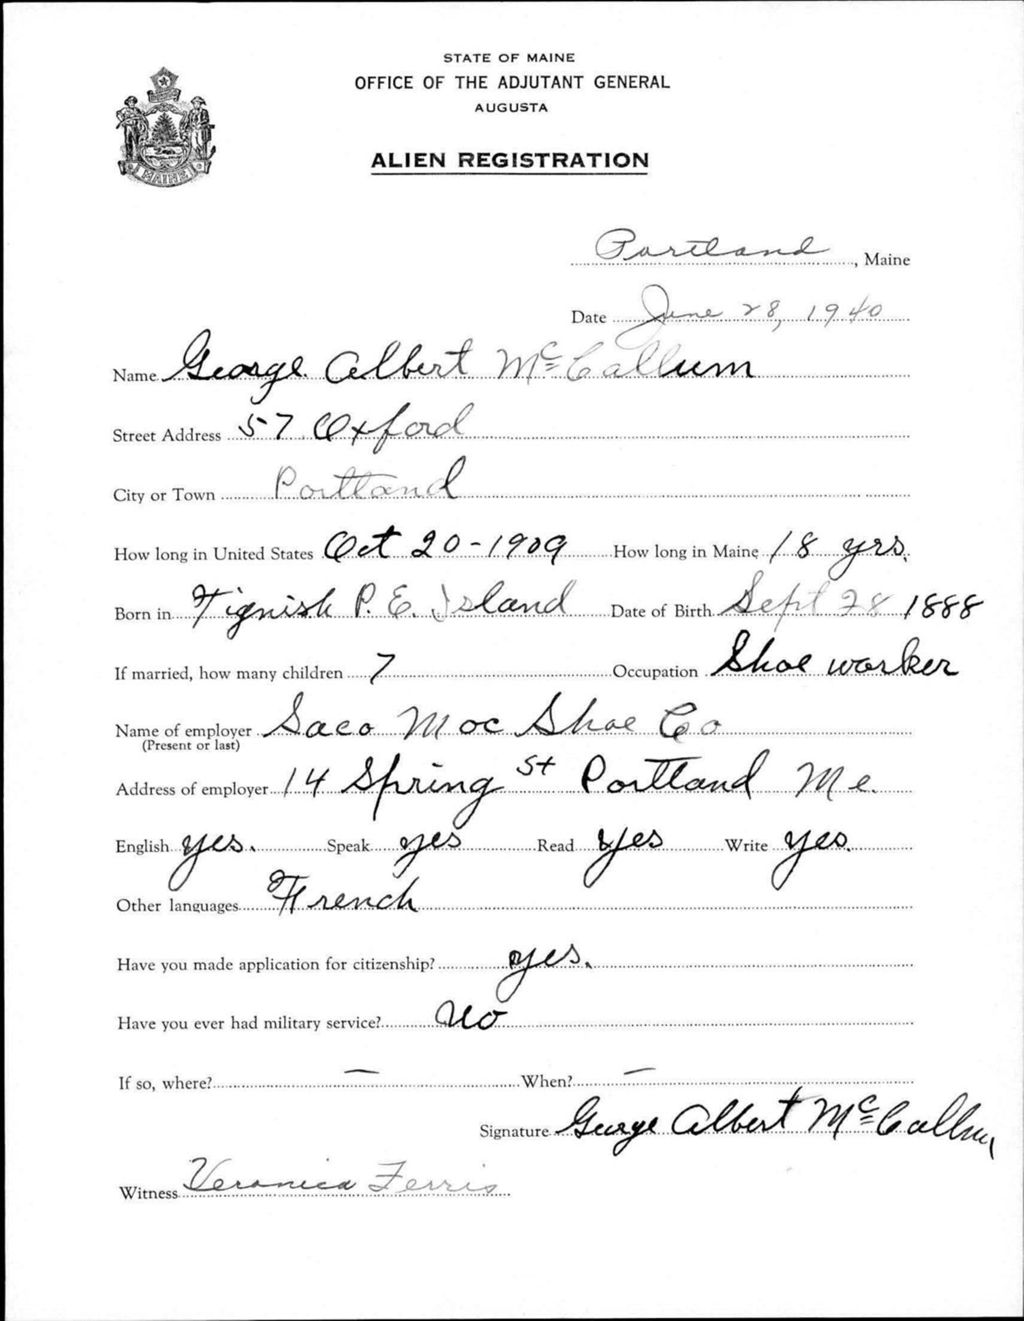 STATE OF MAINE
OFFICE OF THE ADJUTANT GENERAL
AUGUSTA
ALIEN REGISTRATION
MAINE
Portland, Maine
Date June 28, 1940
Name George Albert McCallum
Street Address 57 Oxford
City or Town Portland
How long in United States Oct 20-1909 How long in Maine 18 yrs.
Born in Tignish P. E. Island Date of Birth Sept 28 1888
If married, how many children 7 Occupation Shoe worker
Name of employer Saco Moc Shoe Co
(Present or last)
Address of employer 14 Spring St Portland Me.
English yes. Speak yes Read Yes Write yes.
Other languages French
Have you made application for citizenship? yes.
Have you ever had military service? No
If so, where? — When? —
Signature George Albert McCallum
Witness Veronica Ferris